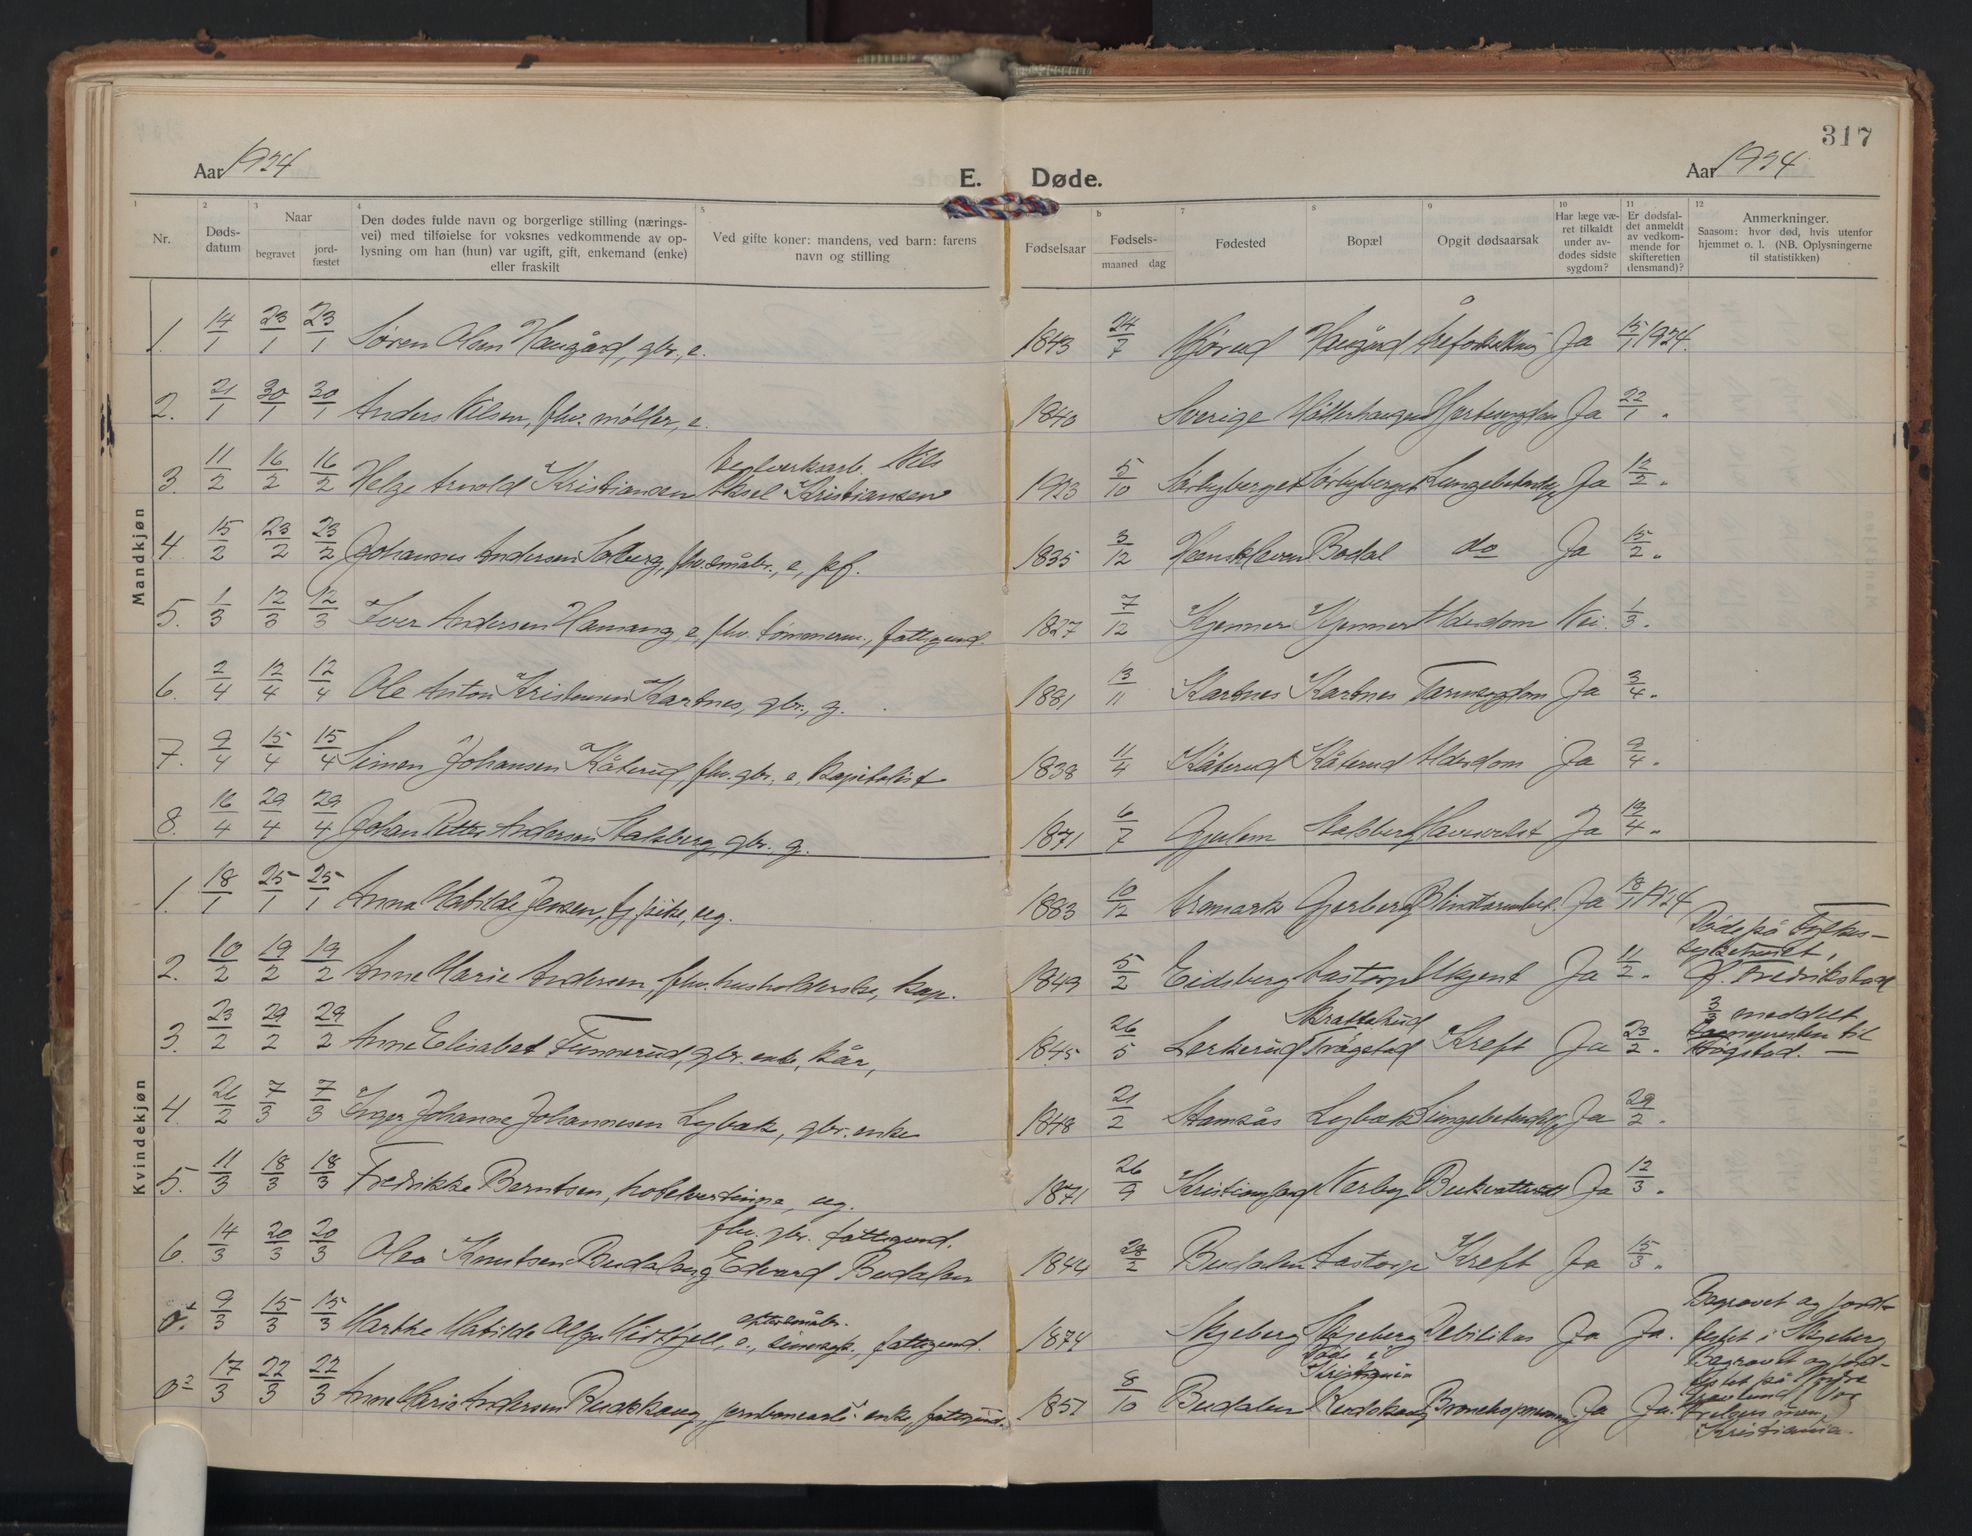 317
Aar 1924 E. Døde. Aar 1924.
1 2 3 4 5 6 7 8 9 10 11 12
Nr. Dødsdatum Naar begravet jordfæstet
Den dødes fulde navn og borgerlige stilling (næringsvei) med tilføielse for voksnes vedkommende av oplysning om han (hun) var ugift, gift, enkemand (enke) eller fraskilt
Ved gifte koner: mandens, ved barn: farens navn og stilling
Fødselsaar Fødsels- maaned dag Fødested Bopæl Opgit dødsaarsak
Har læge været tilkaldt under avdødes sidste sygdom?
Er dødsfaldet anmeldt av vedkommende for skifteretten (lensmand)?
Anmerkninger. Saasom: hvor død, hvis utenfor hjemmet o. l. (NB. Oplysningerne til statistikken)
Mandkjøn
1. 14/1 23/1 23/1 Søren Olsen Haugård, gbr., e. 1843 24/7 Haugård Åreforkalkning Ja 15/1 1924.
2. 21/1 30/1 30/1 Anders Nilsen, fhv. møller, e. 1840 Sverige Ja 22/1 "
3. 11/2 16/2 16/2 Helge Arnold Kristiansen Nils Aksel Kristiansen 1923 5/10 Sørbyberget Sørbyberget Lungebetændelse Ja 12/2 "
4. 15/2 23/2 23/2 Johannes Andersen Solberg, fhv. småbr., e, 1835 3/12 Bodal do Ja 15/2 "
5. 1/3 12/3 12/3 Iver Andersen Hamang, e, fhv. tømmerm., fattigund. 1827 7/12 Kjenner Kjenner Alderdom Nei. 1/3 "
6. 2/4 12/4 12/4 Ole Anton Kristensen Kartnes, gbr., g. 1881 13/11 Kartnes Kartnes Tarmsygdom Ja 3/4 "
7. 9/4 15/4 15/4 Simen Johansen Kåterud, fhv. gbr., e, kapitalist 1838 11/4 Kåterud Kåterud Alderdom Ja 9/4 "
8. 16/4 29/4 29/4 Johan Petter Andersen gbr. g. 1871 6/7 Gjulem Ja "
Kvindekjøn
1. 18/1 25/1 25/1 Anna Matilde Jensen, tj.pike, ug. 1883 10/12 Aremark Gjerberg Ja 18/1 1924
2. 10/2 19/2 19/2 Anne Marie Andersen, fhv. husholderske, kap. 1849 5/2 Eidsberg Aastorp Ukjent Ja 11/2 " Døde på Fylkessykehuset, Fredrikstad
3. 23/2 29/2 29/2 Anne Elisabet Funnerud, gbr. enke, kår, 1845 26/5 Lerkerud Skrattakud Trøgstad Kreft Ja 23/2 " 3/3 meddelt sognepresten til Trøgstad. —
4. 26/2 7/3 7/3 Inger Johanne Johannesen Lybæk, gbr. enke 1848 21/2 Stamsås Lybæk Lungebetændelse Ja 29/2 "
5. 11/3 18/3 18/3 Fredrikke Berntsen, hotelvertinne, ug. 1871 26/9 Nerby Ja 12/3 "
6. 14/3 20/3 20/3 Olea Knutsen fhv. gbr. fattigund. Edvard Budalen 1844 28/2 Budalen Aastorp Kreft Ja 15/3 "
0¹ 9/3 15/3 15/3 Marthe Matilde e., fattigund. 1874 Skjeberg Skjeberg Debilitas Ja Ja. Begravet og jordfestet i Skjeberg
0² 17/3 22/3 22/3 Anne Marie Andersen enke, fattigund. 1857 8/10 Budalen Død i Kristiania Ja Ja. Begravet og jordfestet på Kristiania.